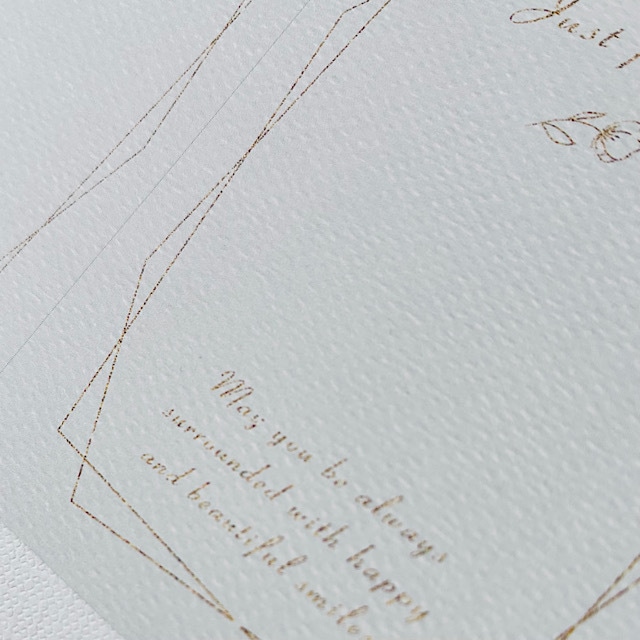 Just
May you be always
surrounded with happy
and beautiful smiles